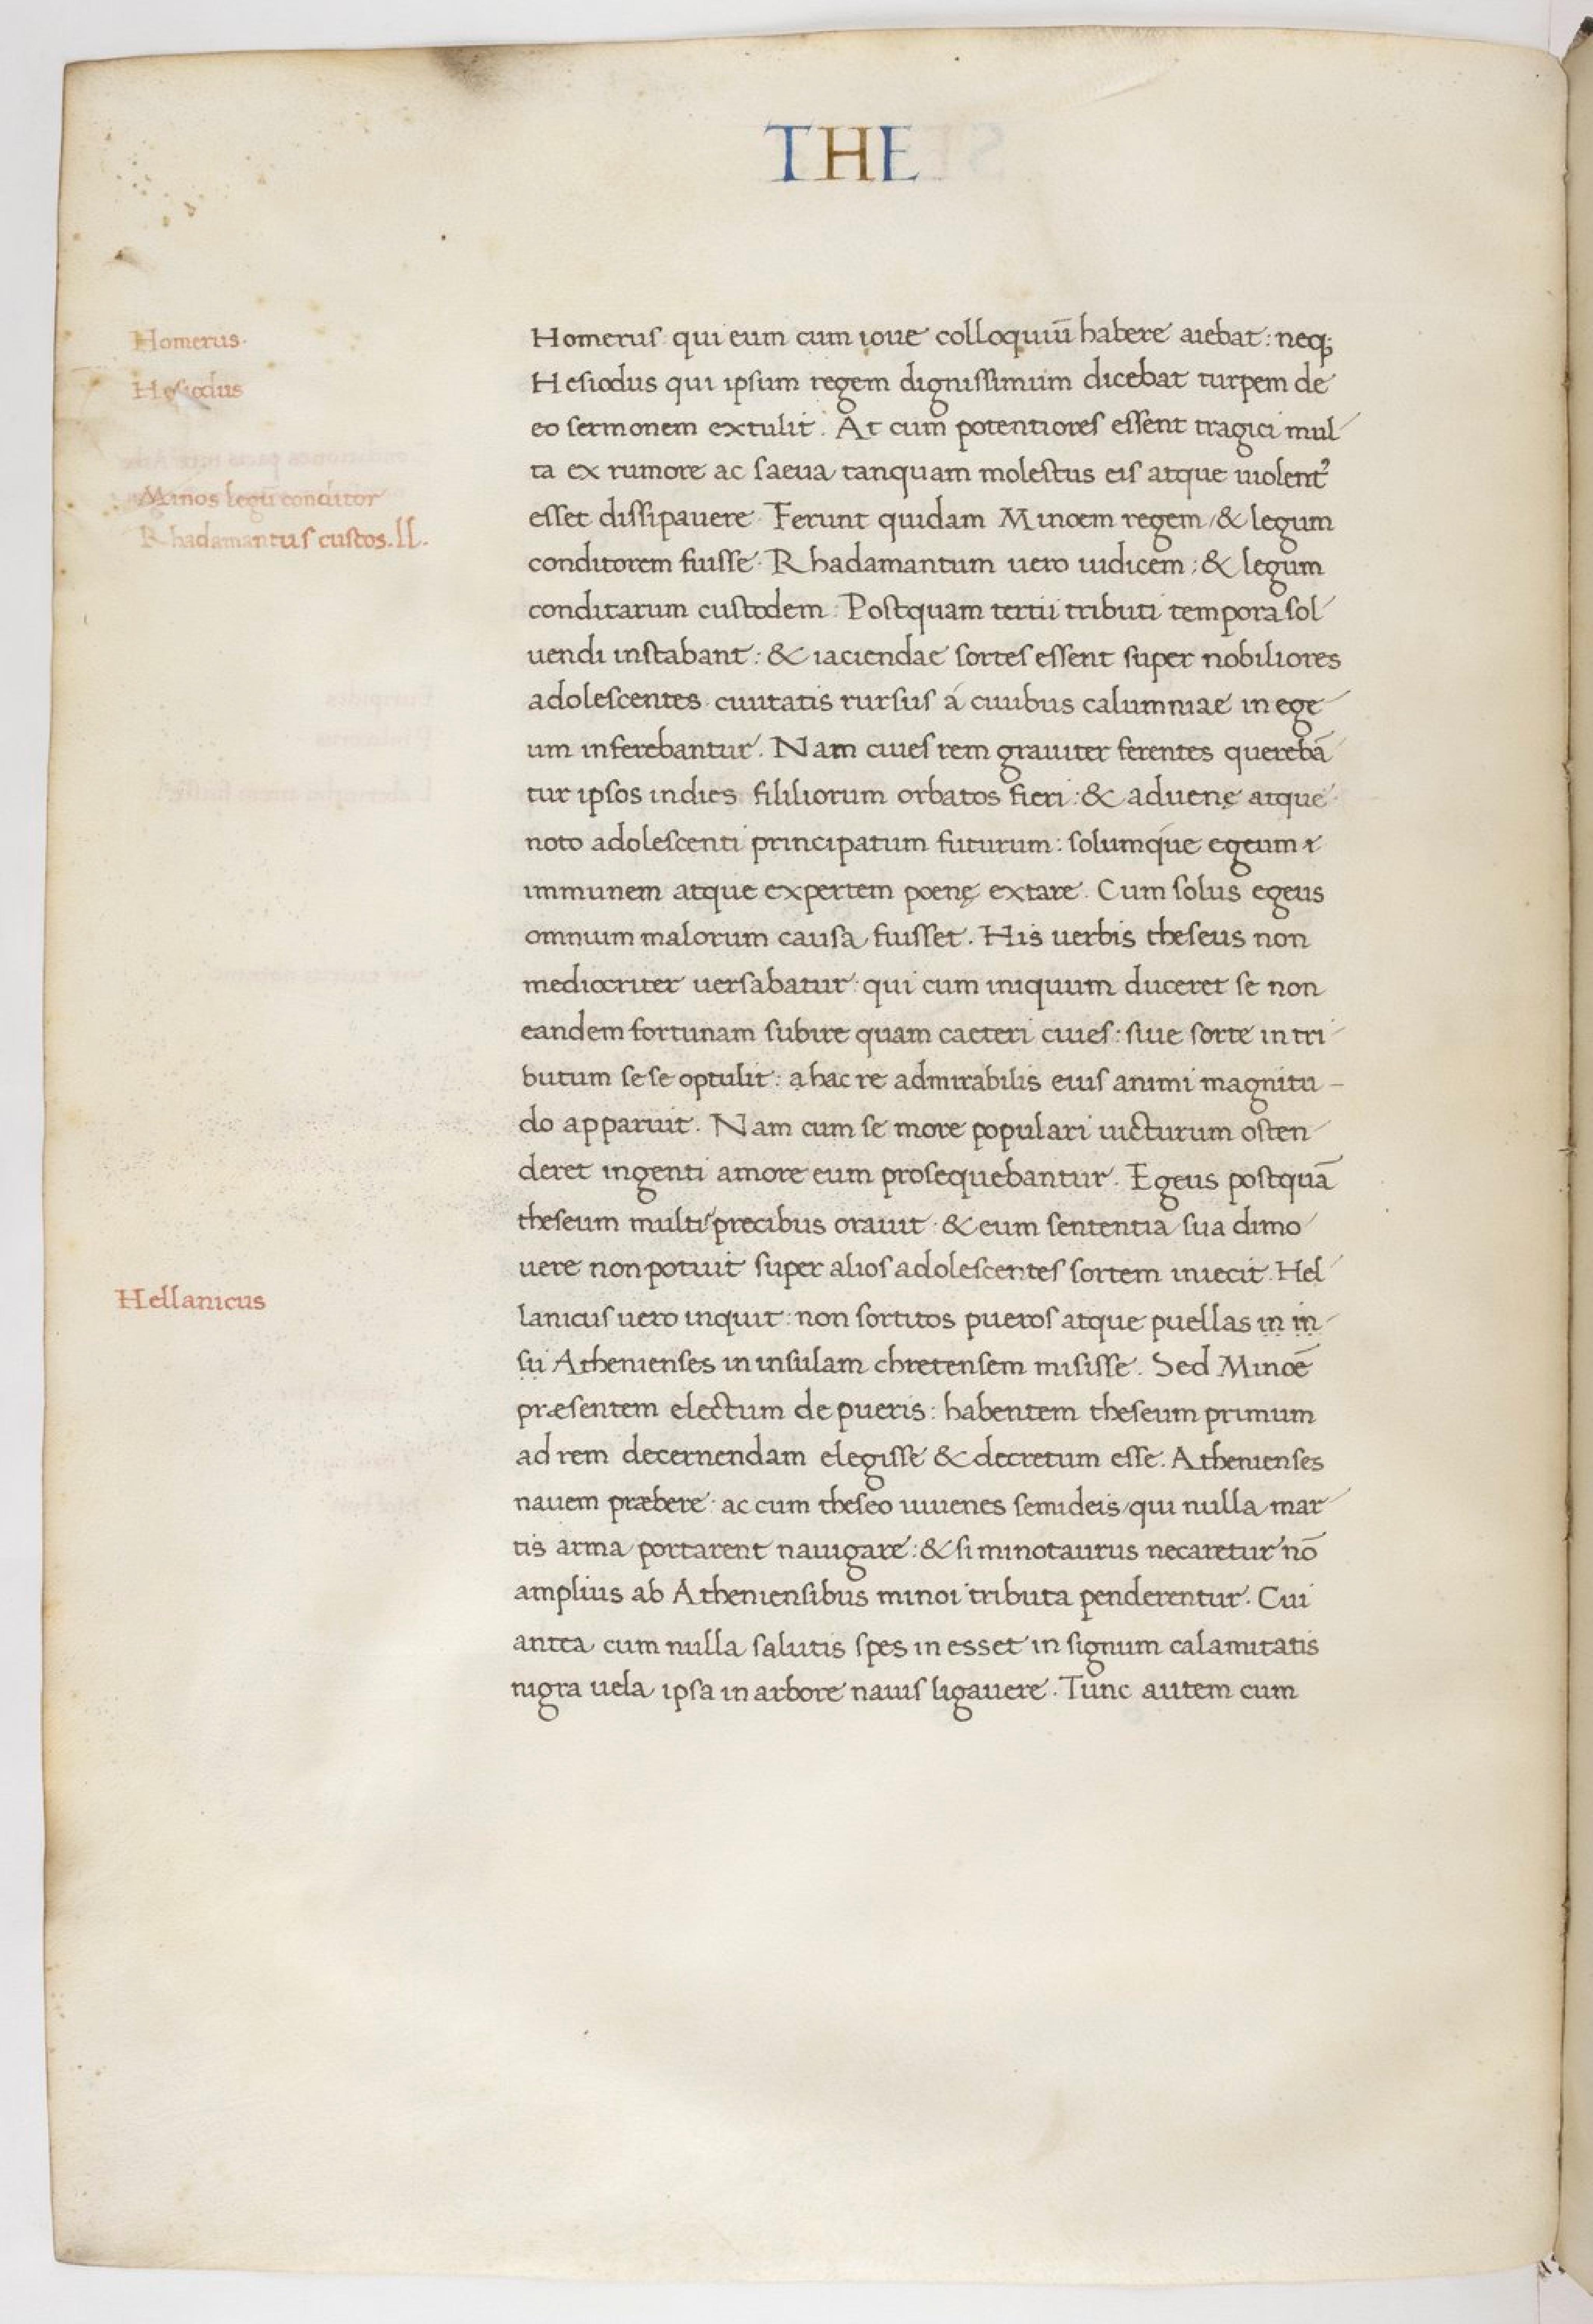 THE
Homerus.
Hesiodus
Minos legū conditor
Rhadamantus custos. ll.
Hellanicus
Homerus qui eum cum ioue colloquiū habere aiebat: neq;
Hesiodus qui ipsum regem dignissimum dicebat turpem de
eo sermonem extulit. At cum potentiores essent tragici mul
ta ex rumore ac saeua tanquam molestus eis atque uiolentꝰ
esset dissipauere. Ferunt quidam Minoem regem / & legum
conditorem fuisse. Rhadamantum uero iudicem; & legum
conditarum custodem. Postquam tertii tributi tempora sol
uendi instabant: & iaciendae sortes essent super nobiliores
adolescentes ciuitatis rursus á ciuibus calumniae in ege
um inferebantur. Nam ciues rem grauiter ferentes querebā
tur ipsos indies fililiorum orbatos fieri: & aduenę atque
noto adolescenti principatum futurum: solumque egeum
immunem atque expertem poenę extare. Cum solus egeus
omnium malorum causa fuisset. His uerbis theseus non
mediocriter uersabatur: qui cum iniquum duceret se non
eandem fortunam subire quam caeteri ciues: siue sorte in tri
butum se se optulit: a hac re admirabilis eius animi magnitu-
do apparuit. Nam cum se more populari uicturum osten
deret ingenti amore eum prosequebantur. Egeus postquā
theseum multis precibus orauit & eum sententia sua dimo
uere non potuit super alios adolescentes sortem iniecit. Hel
lanicus uero inquit: non sortitos pueros atque puellas in in
su Athenienses in insulam chretensem misisse. Sed Minoē
præsentem electum de pueris: habentem theseum primum
ad rem decernendam elegisse & decretum esse. Athenienses
nauem præbere: ac cum theseo iuuenes semideis / qui nulla mar
tis arma portarent nauigare: & si minotaurus necaretur nō
amplius ab Atheniensibus minoi tributa penderentur. Cui
antea cum nulla salutis spes in esset in signum calamitatis
nigra uela ipsa in arbore nauis ligauere. Tunc autem cum